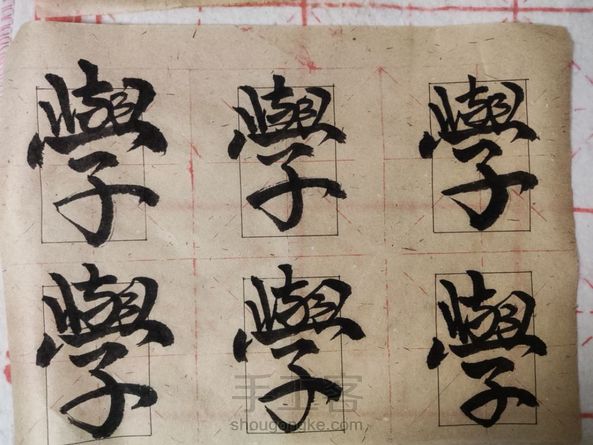 學 學 學
學 學 學
手工客
shougongke.com